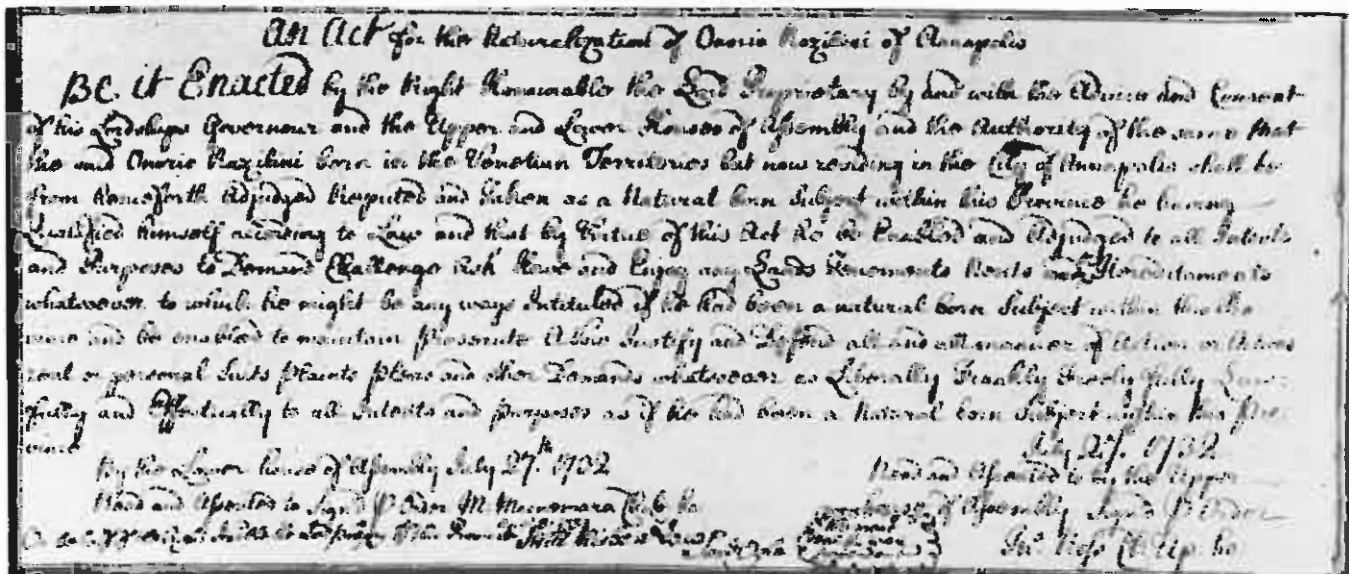 An Act for the Naturalization of Onorio Razilini of Annapolis
Be it Enacted by the Right Honourable the Lord Proprietary By and with the Advice and Consent
of his Lordships Governour and the Upper and Lower Houses of Assembly and the Authority of the same that
he said Onorio Razilini born in the Venetian Territories but now residing in the City of Annapolis shall be
from henceforth Adjudged Reputed and taken as a Natural born Subject within this Province he having
Qualified himself according to Law and that by Virtue of this Act he be Enabled and Adjudged to all Intents
and Purposes to Demand Challenge Ask Have and Enjoy any Lands Tenements Rents and Hereditaments
whatsoever to which he might be any ways Intituled if he had been a natural born Subject within this Pro
vince and be enabled to maintain Prosecute Justify and Defend all and all manner of Action or Actions
real or personal Suits Plaints Pleas and other Demands whatsoever as Liberally Frankly Freely fully
fully and Effectually to all Intents and purposes as if he had been a Natural born Subject within this Pro
vince
July 27. 1732
By the Lower house of Assembly July 27th. 1732
Read and Assented to by the Upper
Read and Assented to Signd P Order M Macnemara Cl. Lo. ho
house of Assembly Signd P Order
Jno Ross Cl Up. ho